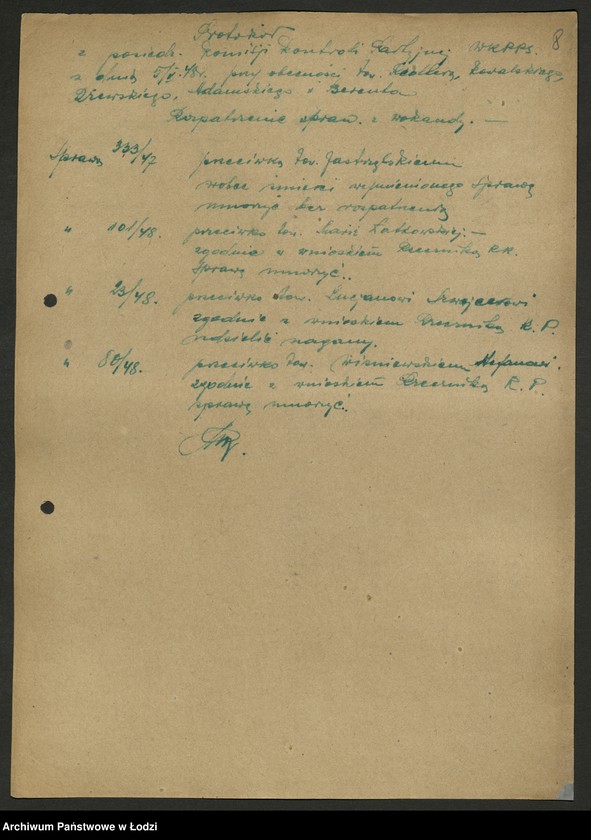 Protokół
8
z posiedz. Komisji Kontroli Partyjnej WKPPS.
z dnia 5/V.48r. przy obecności tow. Kowalskiego,
Adamskiego i Berenta
Rozpatrzenie spraw z wokandy. —
Sprawa 333/47 przeciwko tow. Jastrzębskiemu
wobec śmierci wymienionego sprawę
umorzyć bez rozpatrzenia
" 101/48. przeciwko tow. Marii —
zgodnie z wnioskiem Rzecznika
sprawę umorzyć.
" 23/48. przeciwko tow. Lucjanowi
zgodnie z wnioskiem Rzecznika K. P.
udzielić nagany.
" 80/48. przeciwko tow. Wiśniewskiemu Stefanowi.
zgodnie z wnioskiem Rzecznika K. P.
sprawę umorzyć.
Archiwum Państwowe w Łodzi